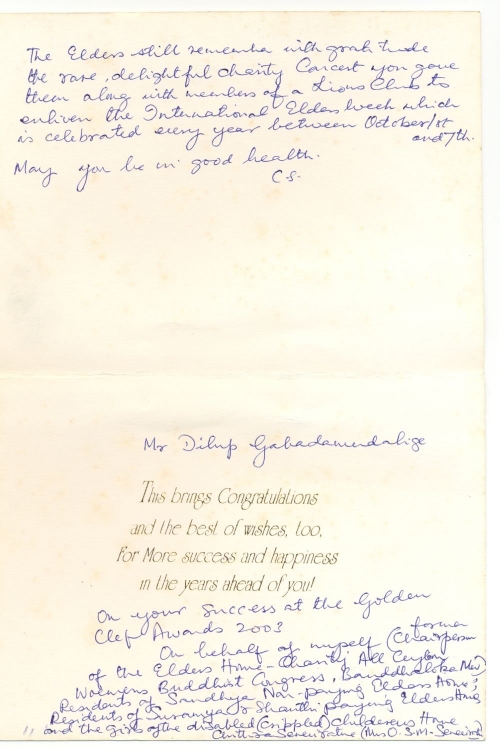 The Elders still remember with gratitude
the rare, delightful charity Concert you gave
them along with members of a Lions Club to
enliven the International Elders week which
is celebrated every year between October 1st
and 7th.
May you be in good health.
C-S-
Mr Dilup Gabadamudalige
This brings Congratulations
and the best of wishes, too,
For More success and happiness
in the years ahead of you!
On your success at the Golden
Clef Awards 2003
On behalf of myself (former Chairperson
of the Elders Home - Charity All Ceylon
Womens Buddhist Congress, Bauddhaloka Mw)
Residents of Sandhya Non-paying Elders Home,
Residents of Suranya & Shanthi paying Elders Home
and the girls of the disabled (crippled) Childrens Home
Chithra Seneviratne (Mrs O.S.M. Seneviratne)